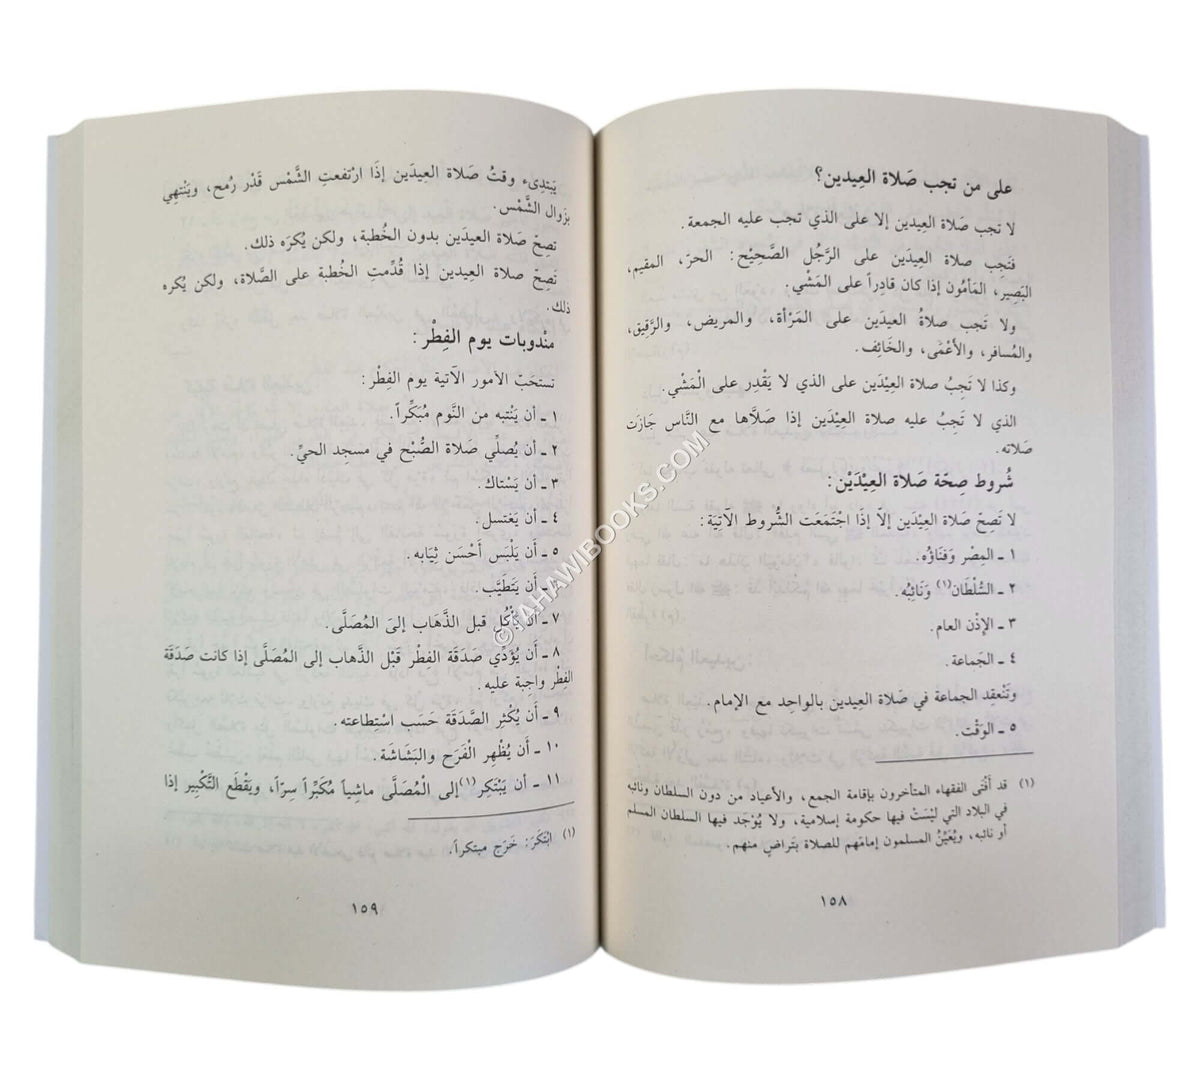 على من تجب صَلاة العِيدين؟
لا تجب صَلاة العِيدين إلا على الذي تجب عليه الجمعة.
فتَجب صلاة العِيدَين على الرَّجُل الصَّحِيْح: الحرّ، المقيم،
البَصِير، المَأمُون إذا كان قادِراً على المَشْي.
ولا تَجب صَلاةُ العِيدَين على المَرْأة، والمريض، والرَّقِيق،
والمُسافر، والأعْمَى، والخَائِف.
وكذا لا تَجِبُ صلاة العِيْدَين على الذي لا يَقْدِر على الْمَشْي.
الذي لا تَجِبُ عليه صلاة العِيْدَين إذا صَلاَّها مع النَّاس جَازَت
صَلاته.
شُروط صِحّة صَلاة العِيْدَيْن:
لا تَصِحّ صَلاة العِيْدَين إلاّ إذَا اجْتَمَعَت الشُّروط الآتِيَة:
١ ـ المِصْر وَفَناؤُه.
٢ ـ السُّلْطَان(١) وَنَائِبُه.
٣ ـ الإذْن العام.
٤ ـ الجَماعة.
وتَنْعقِد الجماعة في صَلاة العِيدين بالواحِد مع الإمام.
٥ ـ الوَقْت.
(١) قد أفْتَى الفقهاء المتأخرون بإقامة الجمع، والأعياد من دون السلطان ونائبه
في البلاد التي لَيْسَتْ فيها حكومة إسلامية، ولا يُوْجَد فيها السلطان المسلم
أو نائبه، ويُعَيِّنُ المسلمون إمامَهم للصلاة بتَراضٍ منهم.
١٥٨
يَبتدِىء وقتُ صَلاة العِيدَين إذَا ارْتفعتِ الشَّمْس قَدْر رُمح، ويَنْتهِي
بزَوال الشَّمْس.
تصِحّ صَلاة العيدَين بدون الخُطبة، ولكن يُكرَه ذلك.
تَصِحّ صلاة العِيدين إذا قُدِّمتِ الخُطبة على الصَّلاة، ولكن يُكره
ذلك.
منْدوبات يوم الفِطْر:
تستحَبّ الأمور الآتية يوم الفِطْر:
١ ـ أن يَنْتبه من النَّوم مُبَكِّراً.
٢ ـ أن يُصلِّي صَلاة الصُّبْح في مسجد الحيِّ.
٣ ـ أن يَسْتاك.
٤ ـ أن يَغتسل.
٥ ـ أن يَلْبَس أحْسَن ثِيَابه.
٦ ـ أن يَتَطيَّب.
٧ ـ أن يَأكُل قبل الذَّهاب إلىَ المُصَلَّى.
٨ ـ أن يُؤَدِّي صَدَقة الفِطر قَبْل الذهاب إلى المُصَلَّى إذا كانت صَدَقَة
الفِطْر واجِبة عليه.
٩ ـ أن يُكْثِر الصَّدَقة حَسَب اسْتِطاعته.
١٠ ـ أن يُظْهر الفَرَح والبَشَاشَة.
١١ ـ أن يَبْتَكِر(١) إلى الْمُصَلَّى ماشِياً مُكَبِّراً سِرّاً، ويَقْطَع التَّكْبِير إذا
(١) ابْتَكَرَ: خَرَج مبتكراً.
١٥٩
© TAHAWIBOOKS.COM